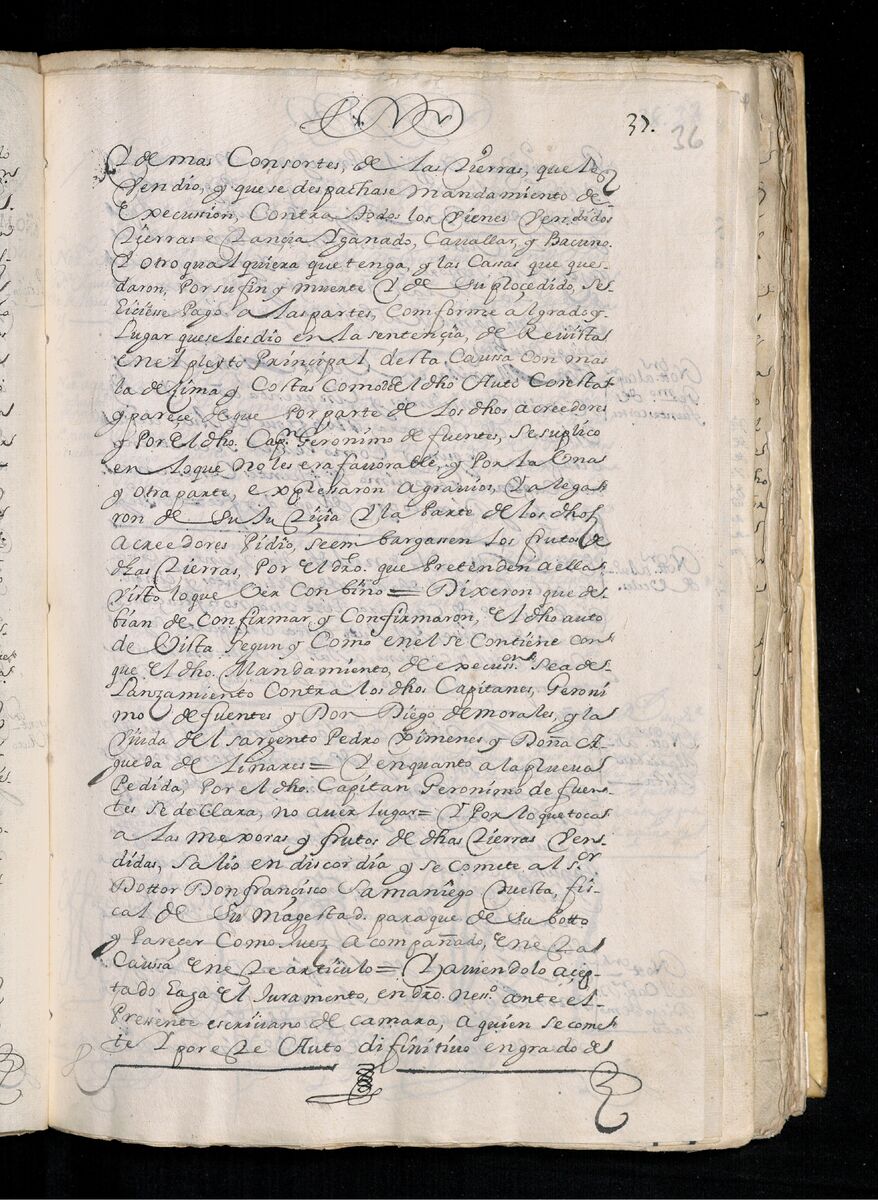 37.
36
Y demas Consortes, de las tierras, que le
Vendio, y que se despachase mandamiento de
Execussion, Contra todos los Vienes Vendidos
tierras estançia Y ganado, Cauallar, y Bacuno.
Y otro qualquiera que tenga, y las Casas que que-
daron, Por su fin y muerte Y de su procedido, se
hiciesse Pago a las partes, Comforme al grado y
Lugar que se les dio en la sentençia, de Reuista
en el pleyto Principal, desta Caussa Con mas
la deçima y Costas Como del dho Auto Consta
y pareçe de que Por parte de los dhos acreedores
y Por El dho. Capn. Geronimo de fuentes, se suplico
en lo que no les era fauorable, y Por la Una
y otra parte, expresaron agrauios, Y alega-
ron de su Justiçia Y la parte de los dhos
acreedores Pidio, se embargassen los frutos de
dhas tierras, Por el dro. que Pretenden a ellas
Visto lo que Ver Conbino = Dixeron que de-
bian de Confirmar y Confirmaron, el dho auto
de Vista segun y Como en el se Contiene con
que el dho. Mandamiento, de execusson. sea de
Lanzamiento Contra los dhos Capitanes, Geroni
mo de fuentes y Don Diego de morales, y la
Viuda del sargento Pedro Ximenes y Doña A-
gueda de Linares = Y en quanto a la prueua
Pedida, Por el dho. Capitan Geronimo de fuen-
tes se declara, no auer lugar = Y Por lo que toca
a las mexoras y frutos de dhas tierras Ven-
didas, salio en discordia y se Comete al sor.
Dottor Don françisco Samaniego Cuesta, fis-
cal de su Magestad. para que de su botto
y Pareçer Como Juez acompañado, en esta
Caussa en este articulo = Y auiendolo açep-
tado haga el Juramento, en dro. nesso. ante el
Presente escriuano de camara, a quien se come
te Y por este Auto difinitiuo en grado de